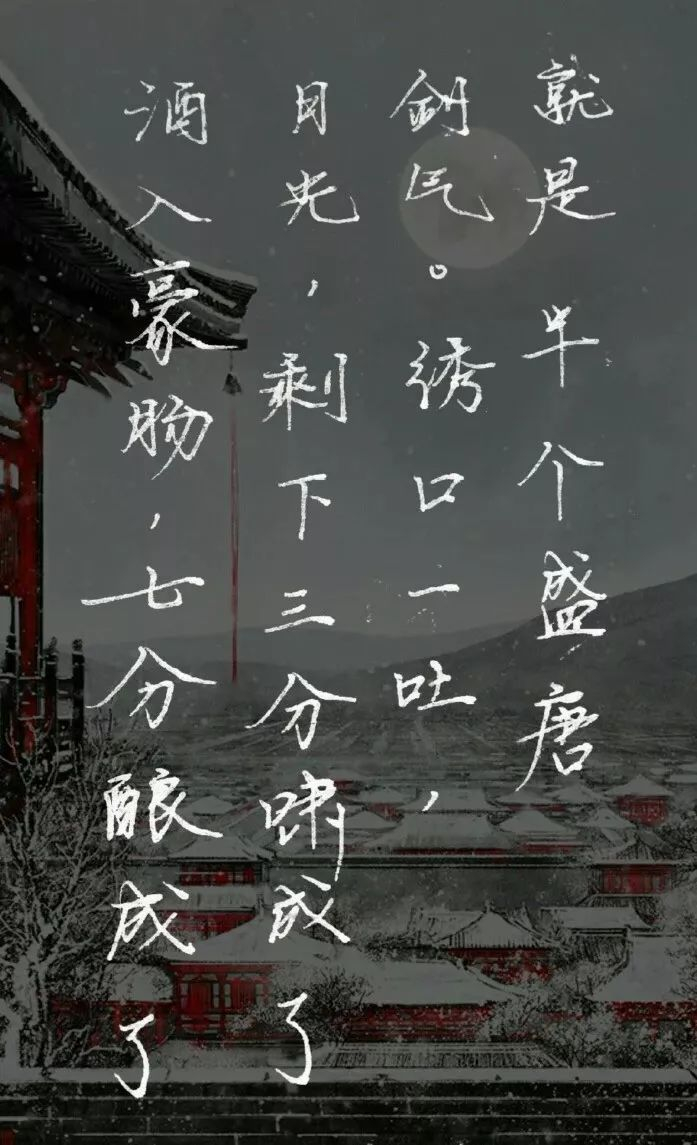 酒入豪肠，七分酿成了
目光，剩下三分啸成了
剑气。绣口一吐，
就是半个盛唐